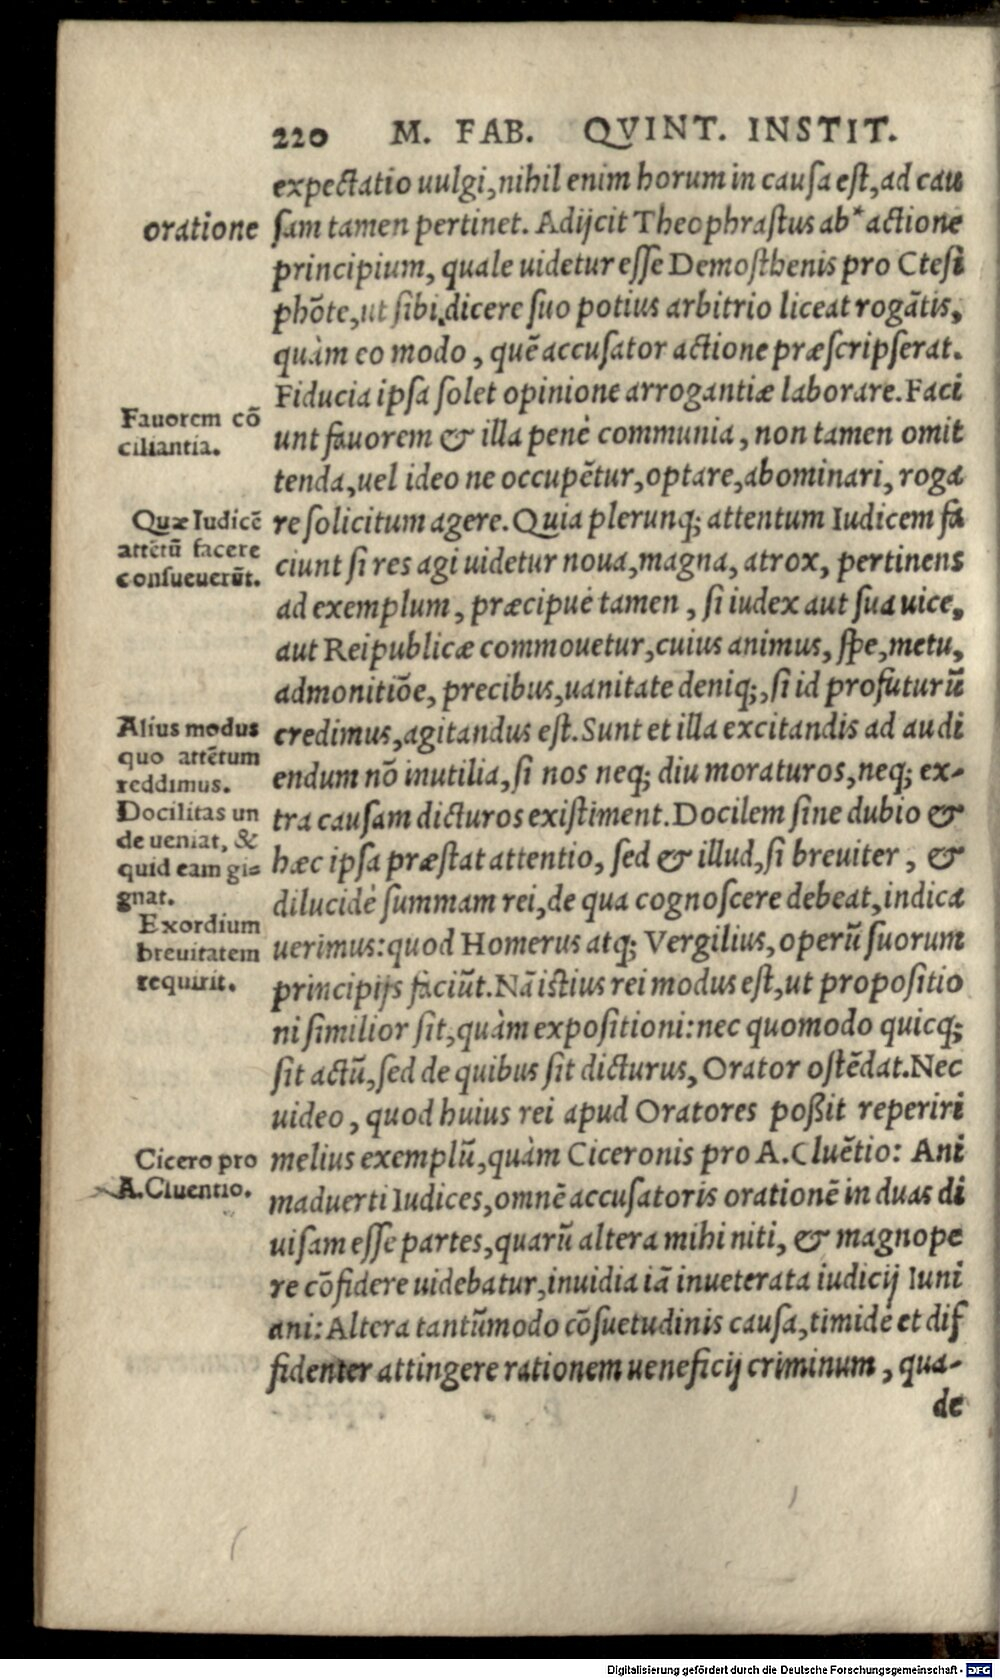 220 M. FAB. QVINT. INSTIT.
expectatio uulgi, nihil enim horum in causa est, ad cau
oratione
sam tamen pertinet. Adijcit Theophrastus ab* actione
principium, quale uidetur esse Demosthenis pro Ctesi
phōte, ut sibi dicere suo potius arbitrio liceat rogātis,
quàm eo modo, quē accusator actione præscripserat.
Fiducia ipsa solet opinione arrogantiæ laborare. Faci
Fauorem cō
ciliantia.
unt fauorem & illa penè communia, non tamen omit
tenda, uel ideo ne occupētur, optare, abominari, roga
Quæ Iudicē
attētū facere
consueuerūt.
re solicitum agere. Quia plerunq; attentum Iudicem fa
ciunt si res agi uidetur noua, magna, atrox, pertinens
ad exemplum, præcipuè tamen, si iudex aut sua uice,
aut Reipublicæ commouetur, cuius animus, spe, metu,
admonitiōe, precibus, uanitate deniq;, si id profuturū
Alius modus
quo attētum
reddimus.
credimus, agitandus est. Sunt et illa excitandis ad audi
endum nō inutilia, si nos neq; diu moraturos, neq; ex-
Docilitas un
de ueniat, &
quid eam gi-
gnat.
tra causam dicturos existiment. Docilem sine dubio &
hæc ipsa præstat attentio, sed & illud, si breuiter, &
dilucidè summam rei, de qua cognoscere debeat, indica
Exordium
breuitatem
requirit.
uerimus: quod Homerus atq; Vergilius, operū suorum
principijs faciūt. Nā istius rei modus est, ut propositio
ni similior sit, quàm expositioni: nec quomodo quicq;
sit actū, sed de quibus sit dicturus, Orator ostēdat. Nec
uideo, quod huius rei apud Oratores poßit reperiri
Cicero pro
A. Cluentio.
melius exemplū, quàm Ciceronis pro A. Cluētio: Ani
maduerti Iudices, omnē accusatoris orationē in duas di
uisam esse partes, quarū altera mihi niti, & magnope
re cōfidere uidebatur, inuidia iā inueterata iudicij Iuni
ani: Altera tantūmodo cōsuetudinis causa, timidè et dif
fidenter attingere rationem ueneficij criminum, qua-
de
Digitalisierung gefördert durch die Deutsche Forschungsgemeinschaft - DFG